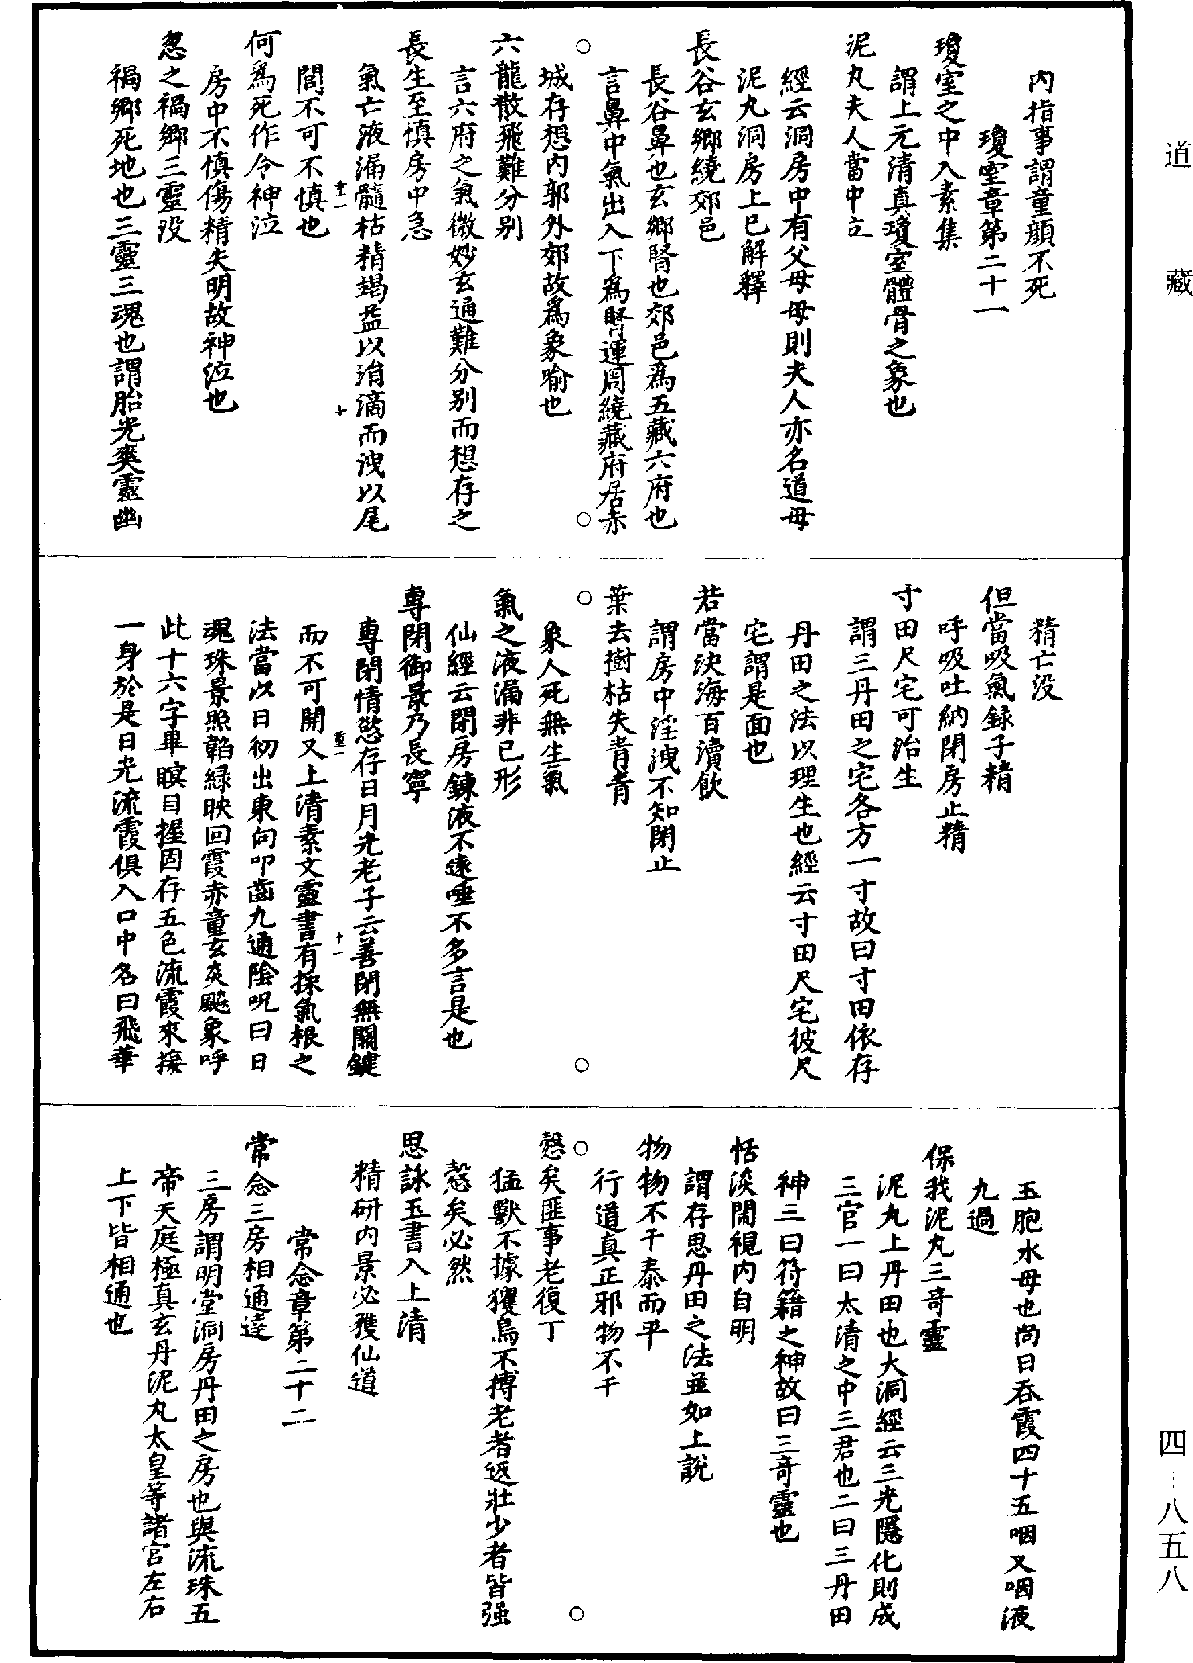 道藏
內指事謂童顏不死
瓊室章第二十一
瓊室之中入素集
謂上元清真瓊室體骨之象也
泥丸夫人當中立
經云洞房中有父母母則夫人亦名道母
泥丸洞房上已解釋
長谷玄鄉繞郊邑
長谷鼻也玄鄉腎也郊邑為五藏六府也
言鼻中氣出入下為腎運周繞藏府居赤
城存想內郭外郊故為象喻也
六龍散飛難分別
言六府之氣微妙玄通難分別而想存之
長生至慎房中急
氣亡液漏髓枯精竭益以涓滴而洩以尾
閭不可不慎也
何為死作令神泣
房中不慎傷精失明故神泣也
忽之禍鄉三靈歿
禍鄉死地也三靈三魂也謂胎光爽靈幽
精亡沒
但當吸氣録子精
呼吸吐納閉房止精
寸田尺宅可治生
謂三丹田之宅各方一寸故曰寸田依存
丹田之法以理生也經云寸田尺宅彼尺
宅謂是面也
若當決海百瀆飲
謂房中淫洩不知閉止
葉去樹枯失青青
象人死無生氣
氣之液漏非己形
仙經云閉房鍊液不遠唾不多言是也
專閉御景乃長寧
專閉情慾存日月光老子云善閉無關鍵
而不可開又上清素文靈書有採氣根之
法當以日初出東向叩齒九通陰呪曰日
魂珠景照韜緑映回霞赤童玄炎飈象呼
此十六字畢瞑目握固存五色流霞來接
一身於是日光流霞俱入口中名曰飛華
玉胞水母也尚日吞霞四十五咽又咽液
九過
保我泥丸三奇靈
泥丸上丹田也大洞經云三光隱化則成
三官一曰太清之中三君也二曰三丹田
神三曰符籍之神故曰三奇靈也
恬淡閑視內自明
謂存思丹田之法並如上說
物物不干泰而平
行道真正邪物不干
慤矣匪事老復丁
猛獸不據玃鳥不搏老者返壯少者皆强
慤矣必然
思詠玉書入上清
精研內景必獲仙道
常念章第二十二
常念三房相通達
三房謂明堂洞房丹田之房也與流珠五
帝天庭極真玄丹泥丸太皇等諸宮左右
上下皆相通也
四-八五八